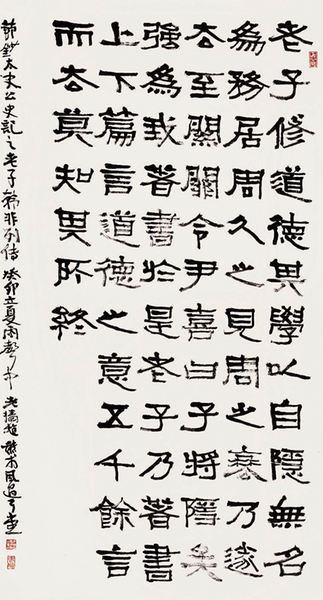 老子修道德其學以自隱無名
為務居周久之見周之衰乃遂
去至關關令尹喜曰子將隱矣
強為我著書於是老子乃著書
上下篇言道德之意五千餘言
而去莫知其所終
節錄太史公史記之老子韓非列傳癸卯立夏雨聲中